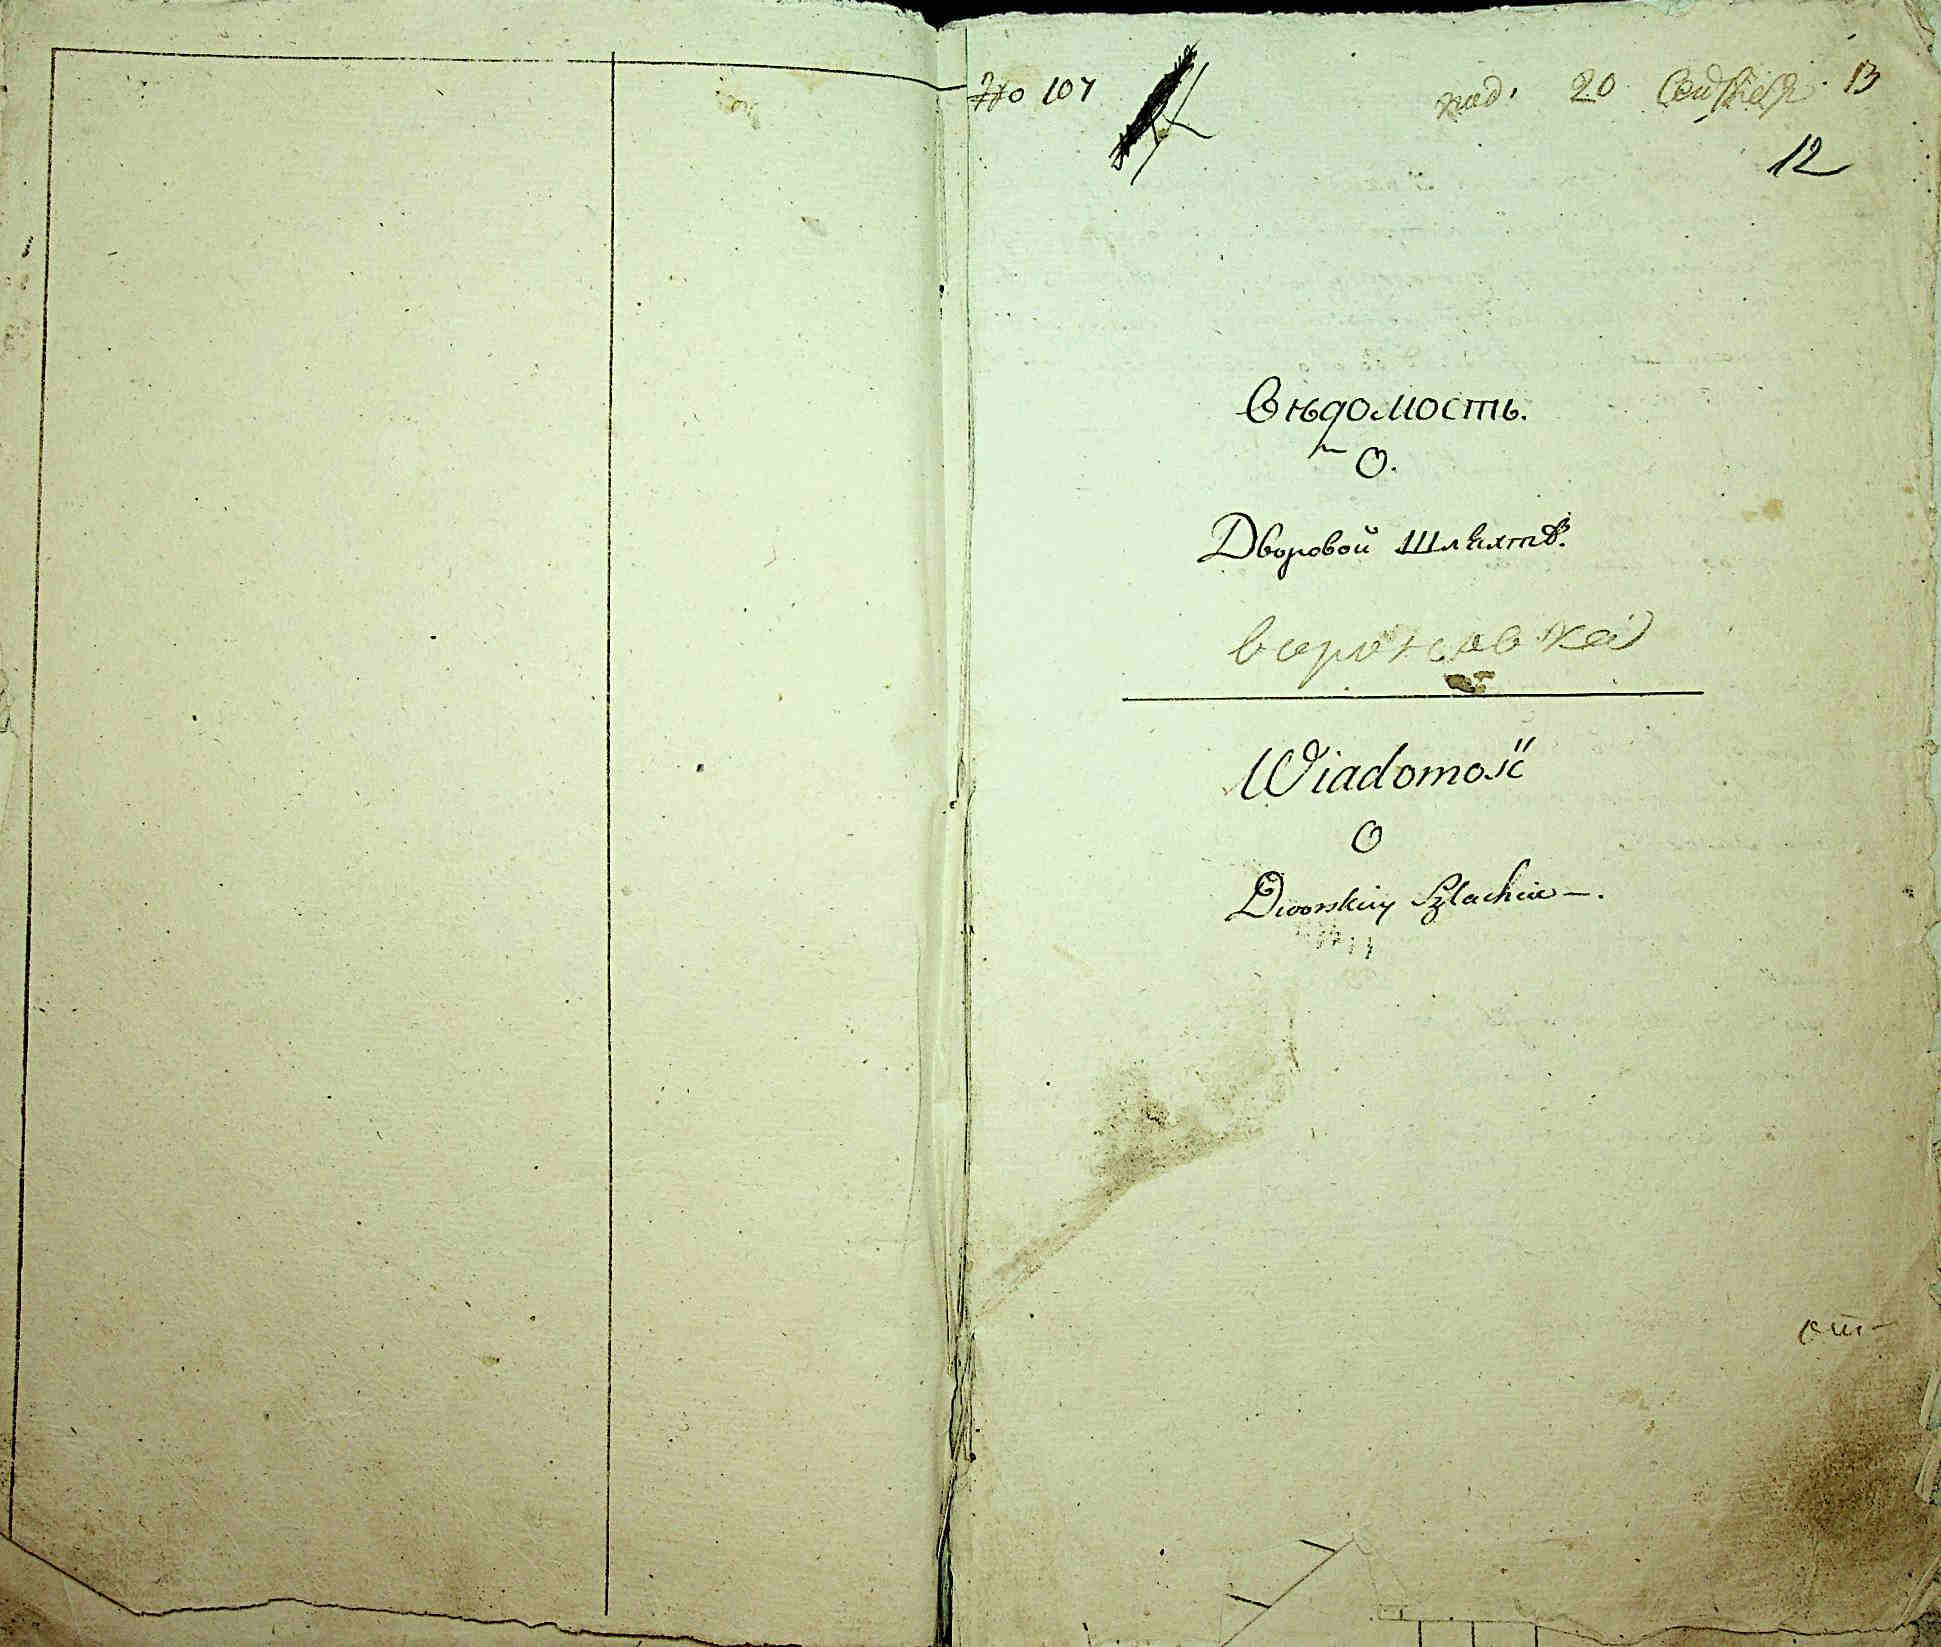 No 107
20 13
12
Вѣдомость.
О.
Дворовой Шляхтѣ.
вороновка
Wiadomość
O
Dworskiey Szlachcie —.